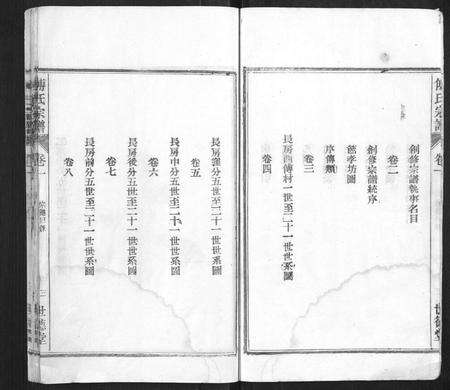 傅氏宗譜
卷一
世德堂
創修宗譜執事名目
卷二
創修宗譜統序
慈孝坊圖
序傳類
卷三
長房西傅村一世至二十一世世系圖
卷四
長房澤分五世至二十一世世系圖
卷五
長房中分五世至二十一世世系圖
卷六
長房後分五世至二十一世世系圖
卷七
長房前分五世至二十一世世系圖
卷八
傅氏宗譜
卷一
世德堂